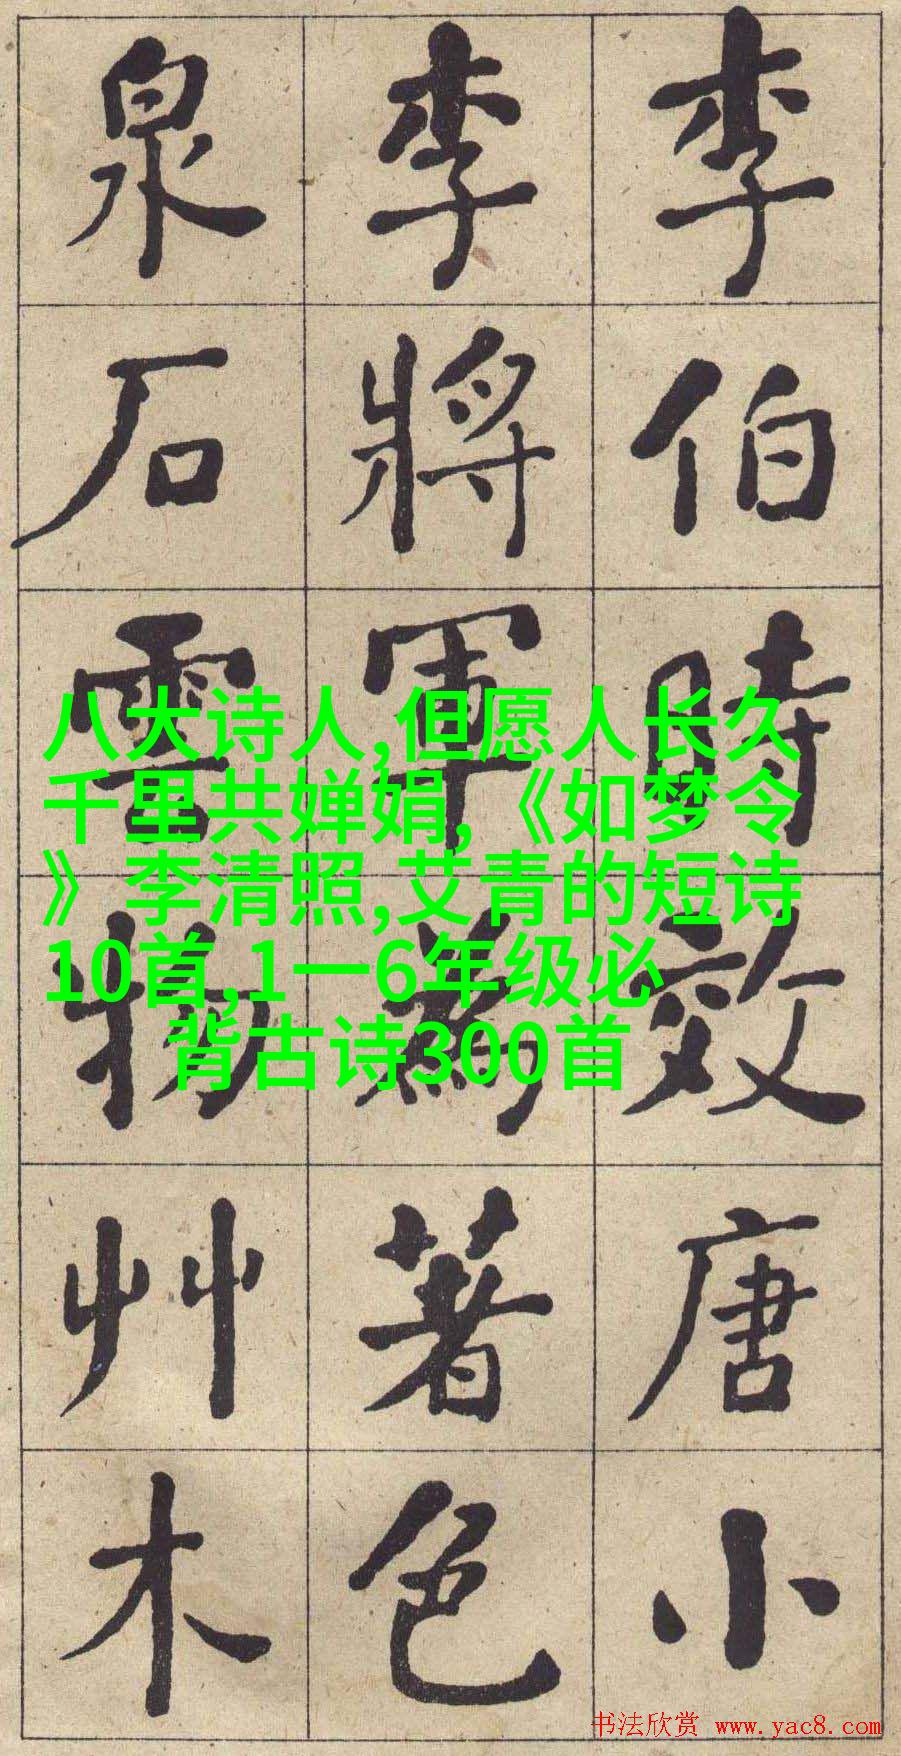 李伯時效唐小
李將軍為著色
泉石雲物艸木
八大诗人,但愿人长久
千里共婵娟,《如梦令
》李清照,艾青的短诗
10首,1一6年级必
背古诗300首
书法欣赏 www.yac8.com